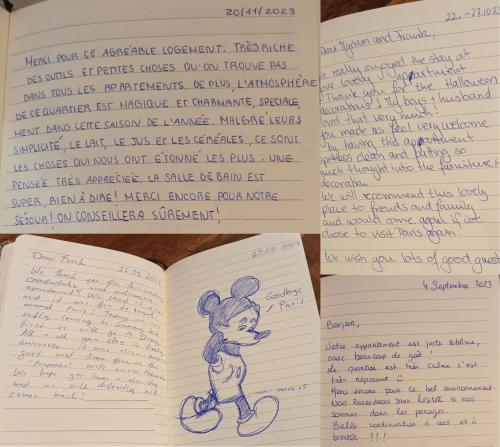 20/11/2023
MERCI POUR CE AGRÉABLE LOGEMENT. TRÈS RICHE
DES OUTILS ET PETITES CHOSES QU'ON TROUVE PAS
DANS TOUS LES APPARTEMENTS. DE PLUS, L'ATMOSPHÈRE
DE CE QUARTIER EST MAGIQUE ET CHARMANTE, SPECIALE
MENT DANS CETTE SAISON DE L'ANNÉE. MALGRÉ LEURS
SIMPLICITÉ, LE LAIT, LE JUS ET LES CÉRÉALES, CE SONT
LES CHOSES QUI NOUS ONT ÉTONNÉ LES PLUS : UNE
PENSÉE TRÈS APPRÉCIÉE. LA SALLE DE BAIN EST
SUPER, RIEN À DIRE! MERCI ENCORE POUR NOTRE
SÉJOUR! ON CONSEILLERA SÛREMENT!
22. - 27.10.2023
Dear and
We really enjoyed the stay at
your lovely appartment.
Thank you for the Halloween
decorations! My boys + husband
loved that very much!
You made us feel very welcome
by having this appartment
spotless clean and putting so
much thought into the furniture +
decoration.
We will recommend this lovely
place to friends and family
and would come again if we
chose to visit Paris again!
We wish you lots of good guests
Dear
We thank you for this
comfortable and welcoming
apartment! We loved
and it was fine to travel
around Paris! Today we are
sadly leaving to
All in all your stay is
We hope you
and we will definitely
come back!
Goodbye
Paris
4 Septembre 2023
Bonjour,
Votre appartement est juste sublime,
avec beaucoup de goût!
Le quartier est très calme c'est
très reposant
Merci encore pour ce bel environnement.
Nous reviendrons sans hésiter si nous
sommes dans les parages.
Belles continuation à vous et à
bientôt !!!